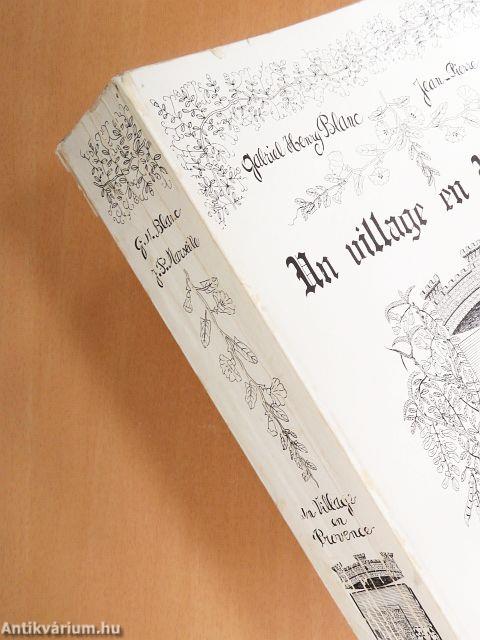 Gabriel Henry Blanc
Jean-Pierre
Un village en
G. H. Blanc
J. P. Marseille
Un Village
en
Provence
Antikvárium.hu